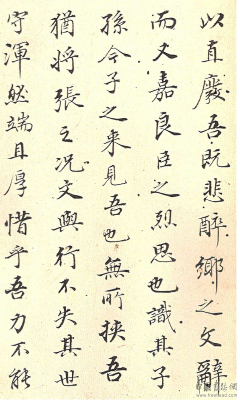 以直廢吾既悲醉鄉之文辭
而又嘉良臣之烈思也識其子
孫今子之来見吾也無所挾吾
猶將張之况文與行不失其世
守渾然端且厚惜乎吾力不能